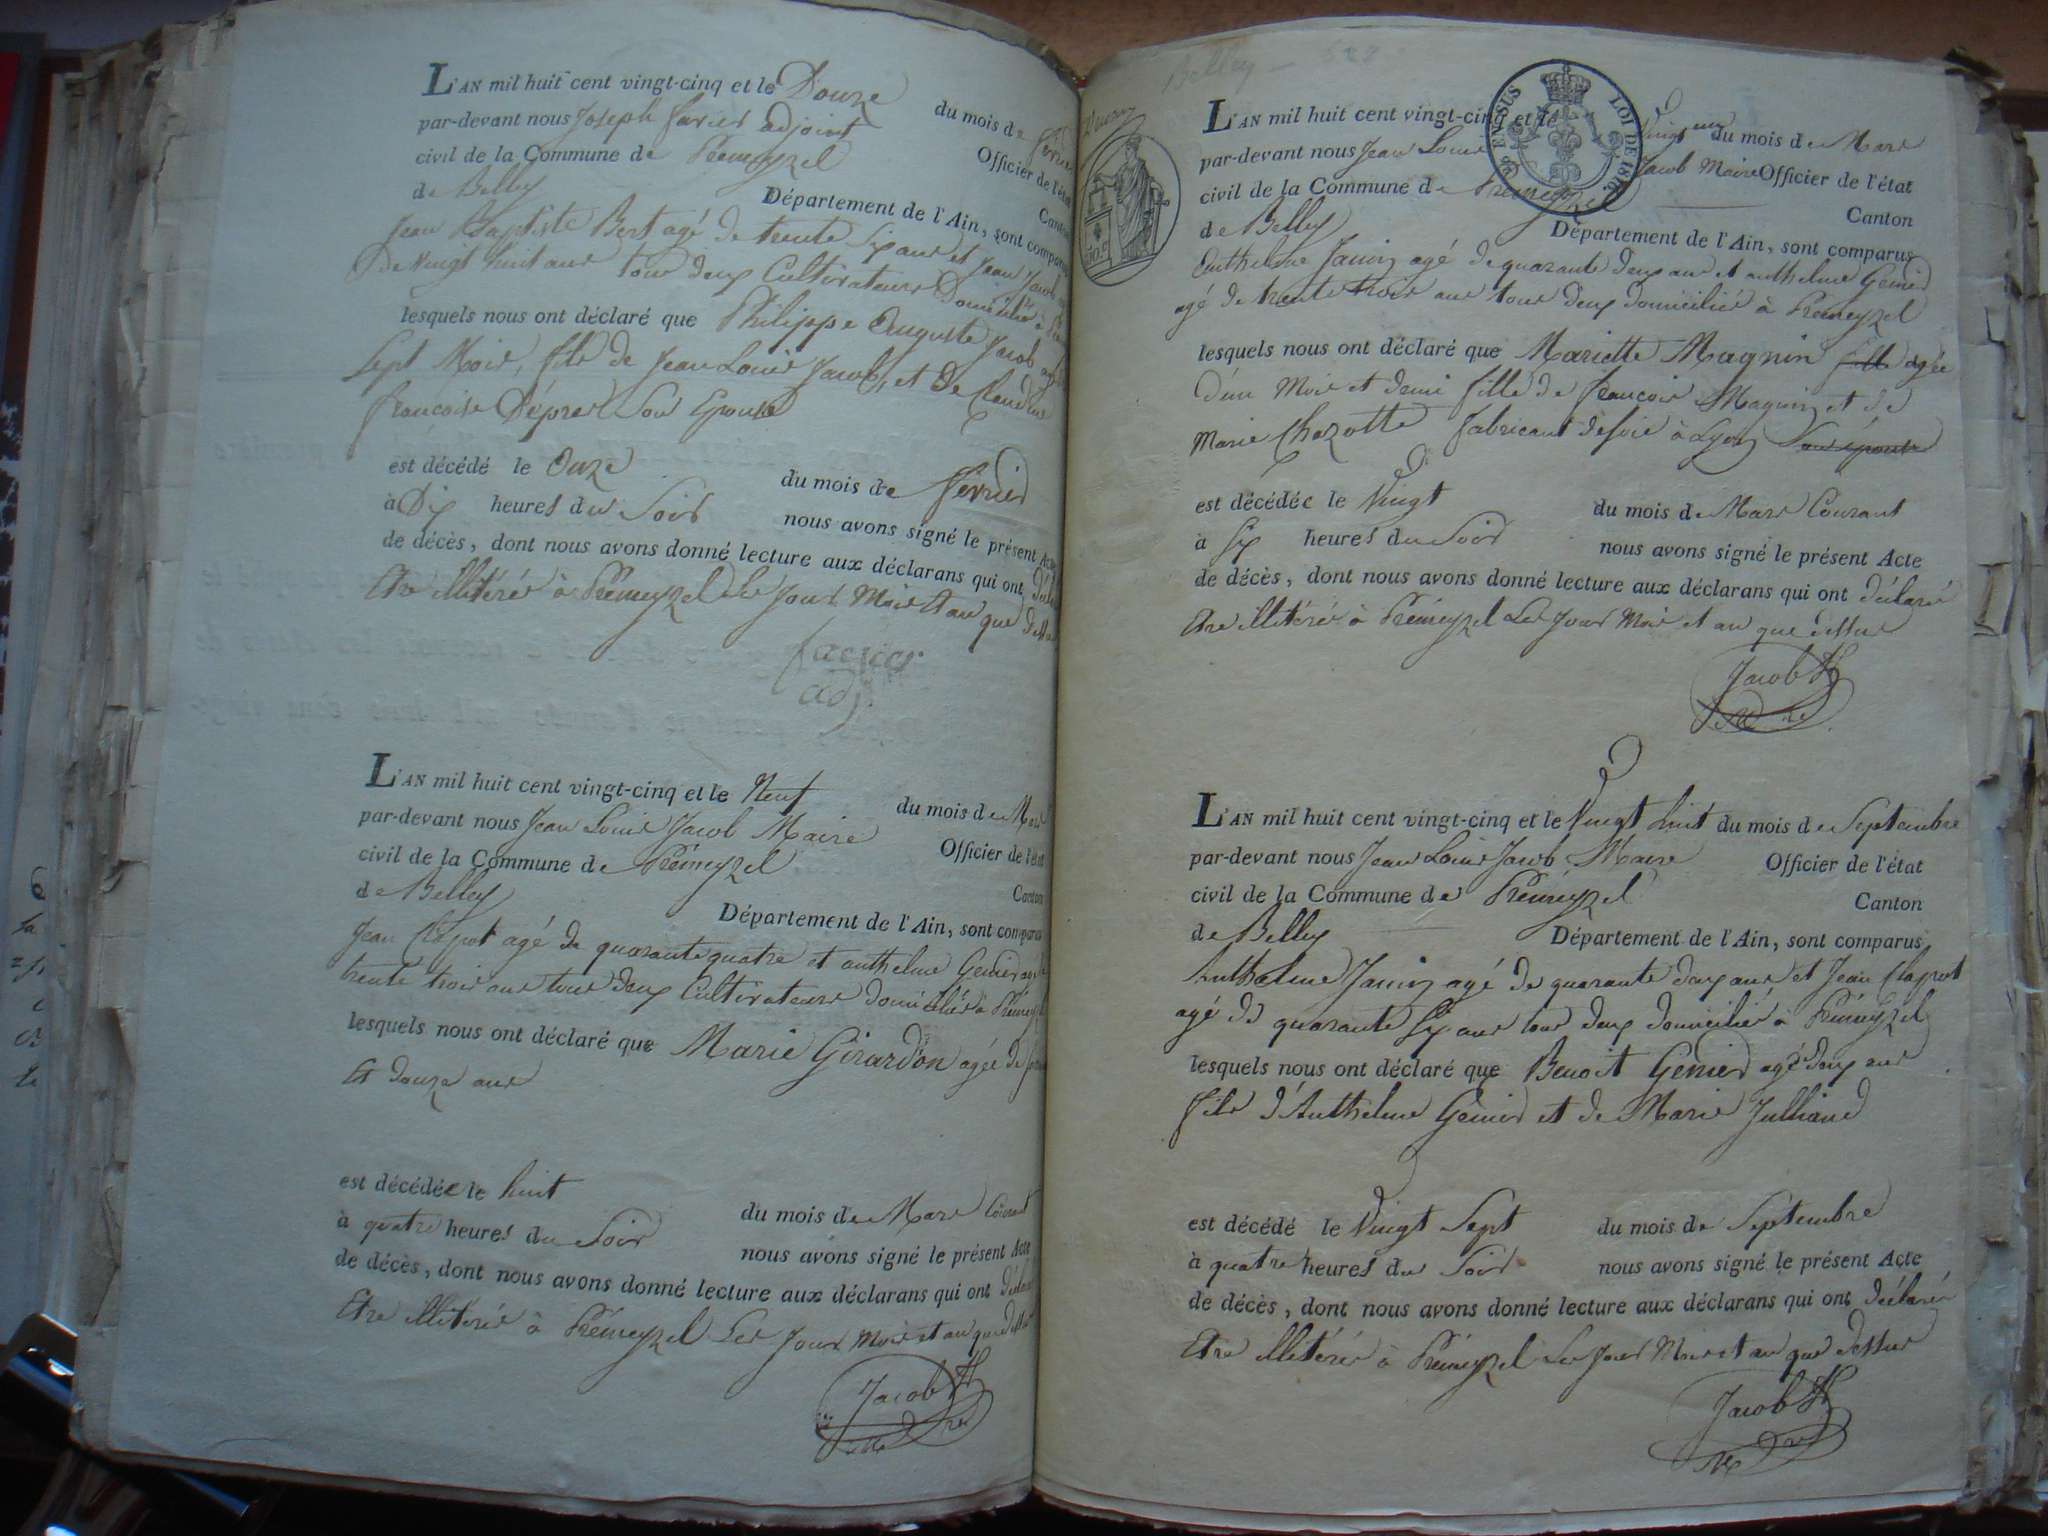 L'AN mil huit cent vingt-cinq et le Douze du mois de fevrier
par-devant nous Joseph favier adjoint Officier de l'état
civil de la Commune de Prémeyzel Canton
de Belley Département de l'Ain, sont comparus
Jean Baptiste Bert agé de trente Six ans et Jean Jacob
de Vingt huit ans tous deux Cultivateurs Domiciliés à
lesquels nous ont déclaré que Philippe Auguste Jacob agé
Sept Mois, fils de Jean Louis Jacob, et de Claudine
françoise Déprez Son Epouse
est décédé le Onze du mois de fevrier
à Dix heures du Soir nous avons signé le présent Acte
de décès, dont nous avons donné lecture aux déclarans qui ont
Etre illitérés à Prémeyzel Les Jour Mois et an que dessus
favier
adj.
L'AN mil huit cent vingt-cinq et le Neuf du mois de Mars
par-devant nous Jean Louis Jacob Maire Officier de l'état
civil de la Commune de Prémeyzel Canton
de Belley Département de l'Ain, sont comparus
Jean Clapot agé de quarante quatre et anthelme Genier agé
trente trois ans tous deux Cultivateurs domiciliés à Prémeyzel
lesquels nous ont déclaré que Marie Girardon agée de
Et douze ans
est décédée le huit du mois de Mars Courant
à quatre heures du Soir nous avons signé le présent Acte
de décès, dont nous avons donné lecture aux déclarans qui ont déclaré
Etre illitérés à Prémeyzel Les Jour Mois et an que dessus
Jacob
Belley
L'AN mil huit cent vingt-cinq et le Vingt un du mois de Mars
par-devant nous Jean Louis Jacob Maire Officier de l'état
civil de la Commune de Prémeyzel Canton
de Belley Département de l'Ain, sont comparus
Anthelme Janin agé de quarante deux ans et anthelme Genier
agé de trente trois ans tous deux domiciliés à Prémeyzel
lesquels nous ont déclaré que Mariette Magnin fille agée
D'un Mois et demi fille de françois Magnin et de
Marie Chazotte fabricant de soie à Lyon Son épouse
est décédée le Vingt du mois de Mars Courant
à Six heures du Soir nous avons signé le présent Acte
de décès, dont nous avons donné lecture aux déclarans qui ont déclaré
Etre illitérés à Prémeyzel Les Jour Mois et an que dessus
Jacob
L'AN mil huit cent vingt-cinq et le Vingt huit du mois de Septembre
par-devant nous Jean Louis Jacob Maire Officier de l'état
civil de la Commune de Prémeyzel Canton
de Belley Département de l'Ain, sont comparus
Anthelme Janin agé de quarante deux ans et Jean Clapot
agé de quarante Six ans tous deux domiciliés à Prémeyzel
lesquels nous ont déclaré que Benoit Genier agé deux ans
fils d'Anthelme Genier et de Marie Julliand
est décédé le Vingt Sept du mois de Septembre
à quatre heures du Soir nous avons signé le présent Acte
de décès, dont nous avons donné lecture aux déclarans qui ont déclaré
Etre illitérés à Prémeyzel Les Jour Mois et an que dessus
Jacob